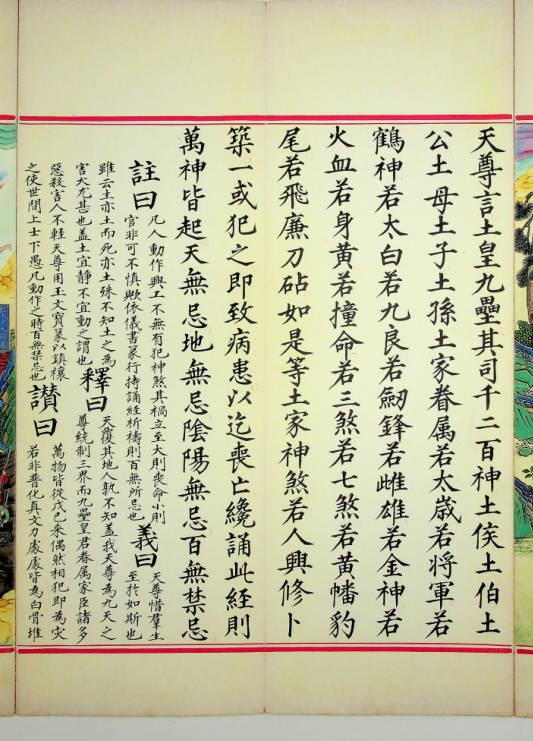 天尊言土皇九壘其司千二百神土侯土伯土
公土母土子土孫土家眷属若太歲若將軍若
鶴神若太白若九良若劒鋒若雌雄若金神若
火血若身黄若撞命若三煞若七煞若黄幡豹
尾若飛廉刀砧如是等土家神煞若人興修卜
築一或犯之即致病患以迄喪亡纔誦此經則
萬神皆起天無忌地無忌陰陽無忌百無禁忌
註曰
凡人動作興工不無有犯神煞其禍立至大則喪命小則
官非可不慎歟依儀書篆行持誦經祈禱則百無所忌也
義曰
天尊惜羣生
至於如斯也
雖云土亦土而死亦土殊不知土之為
害大尤甚也盖土宜静不宜動之謂也
釋曰
天覆其地人孰不知盖我天尊為九天之
尊統制三界而九壘皇君眷属家臣諸多
惡殺害人不輕天尊用玉文寶篆以鎮禳
之使世間上士下愚凡動作之時百無禁忌也
讃曰
萬物皆從戊己来偶然相犯即為灾
若非普化真文力處處皆為白骨堆